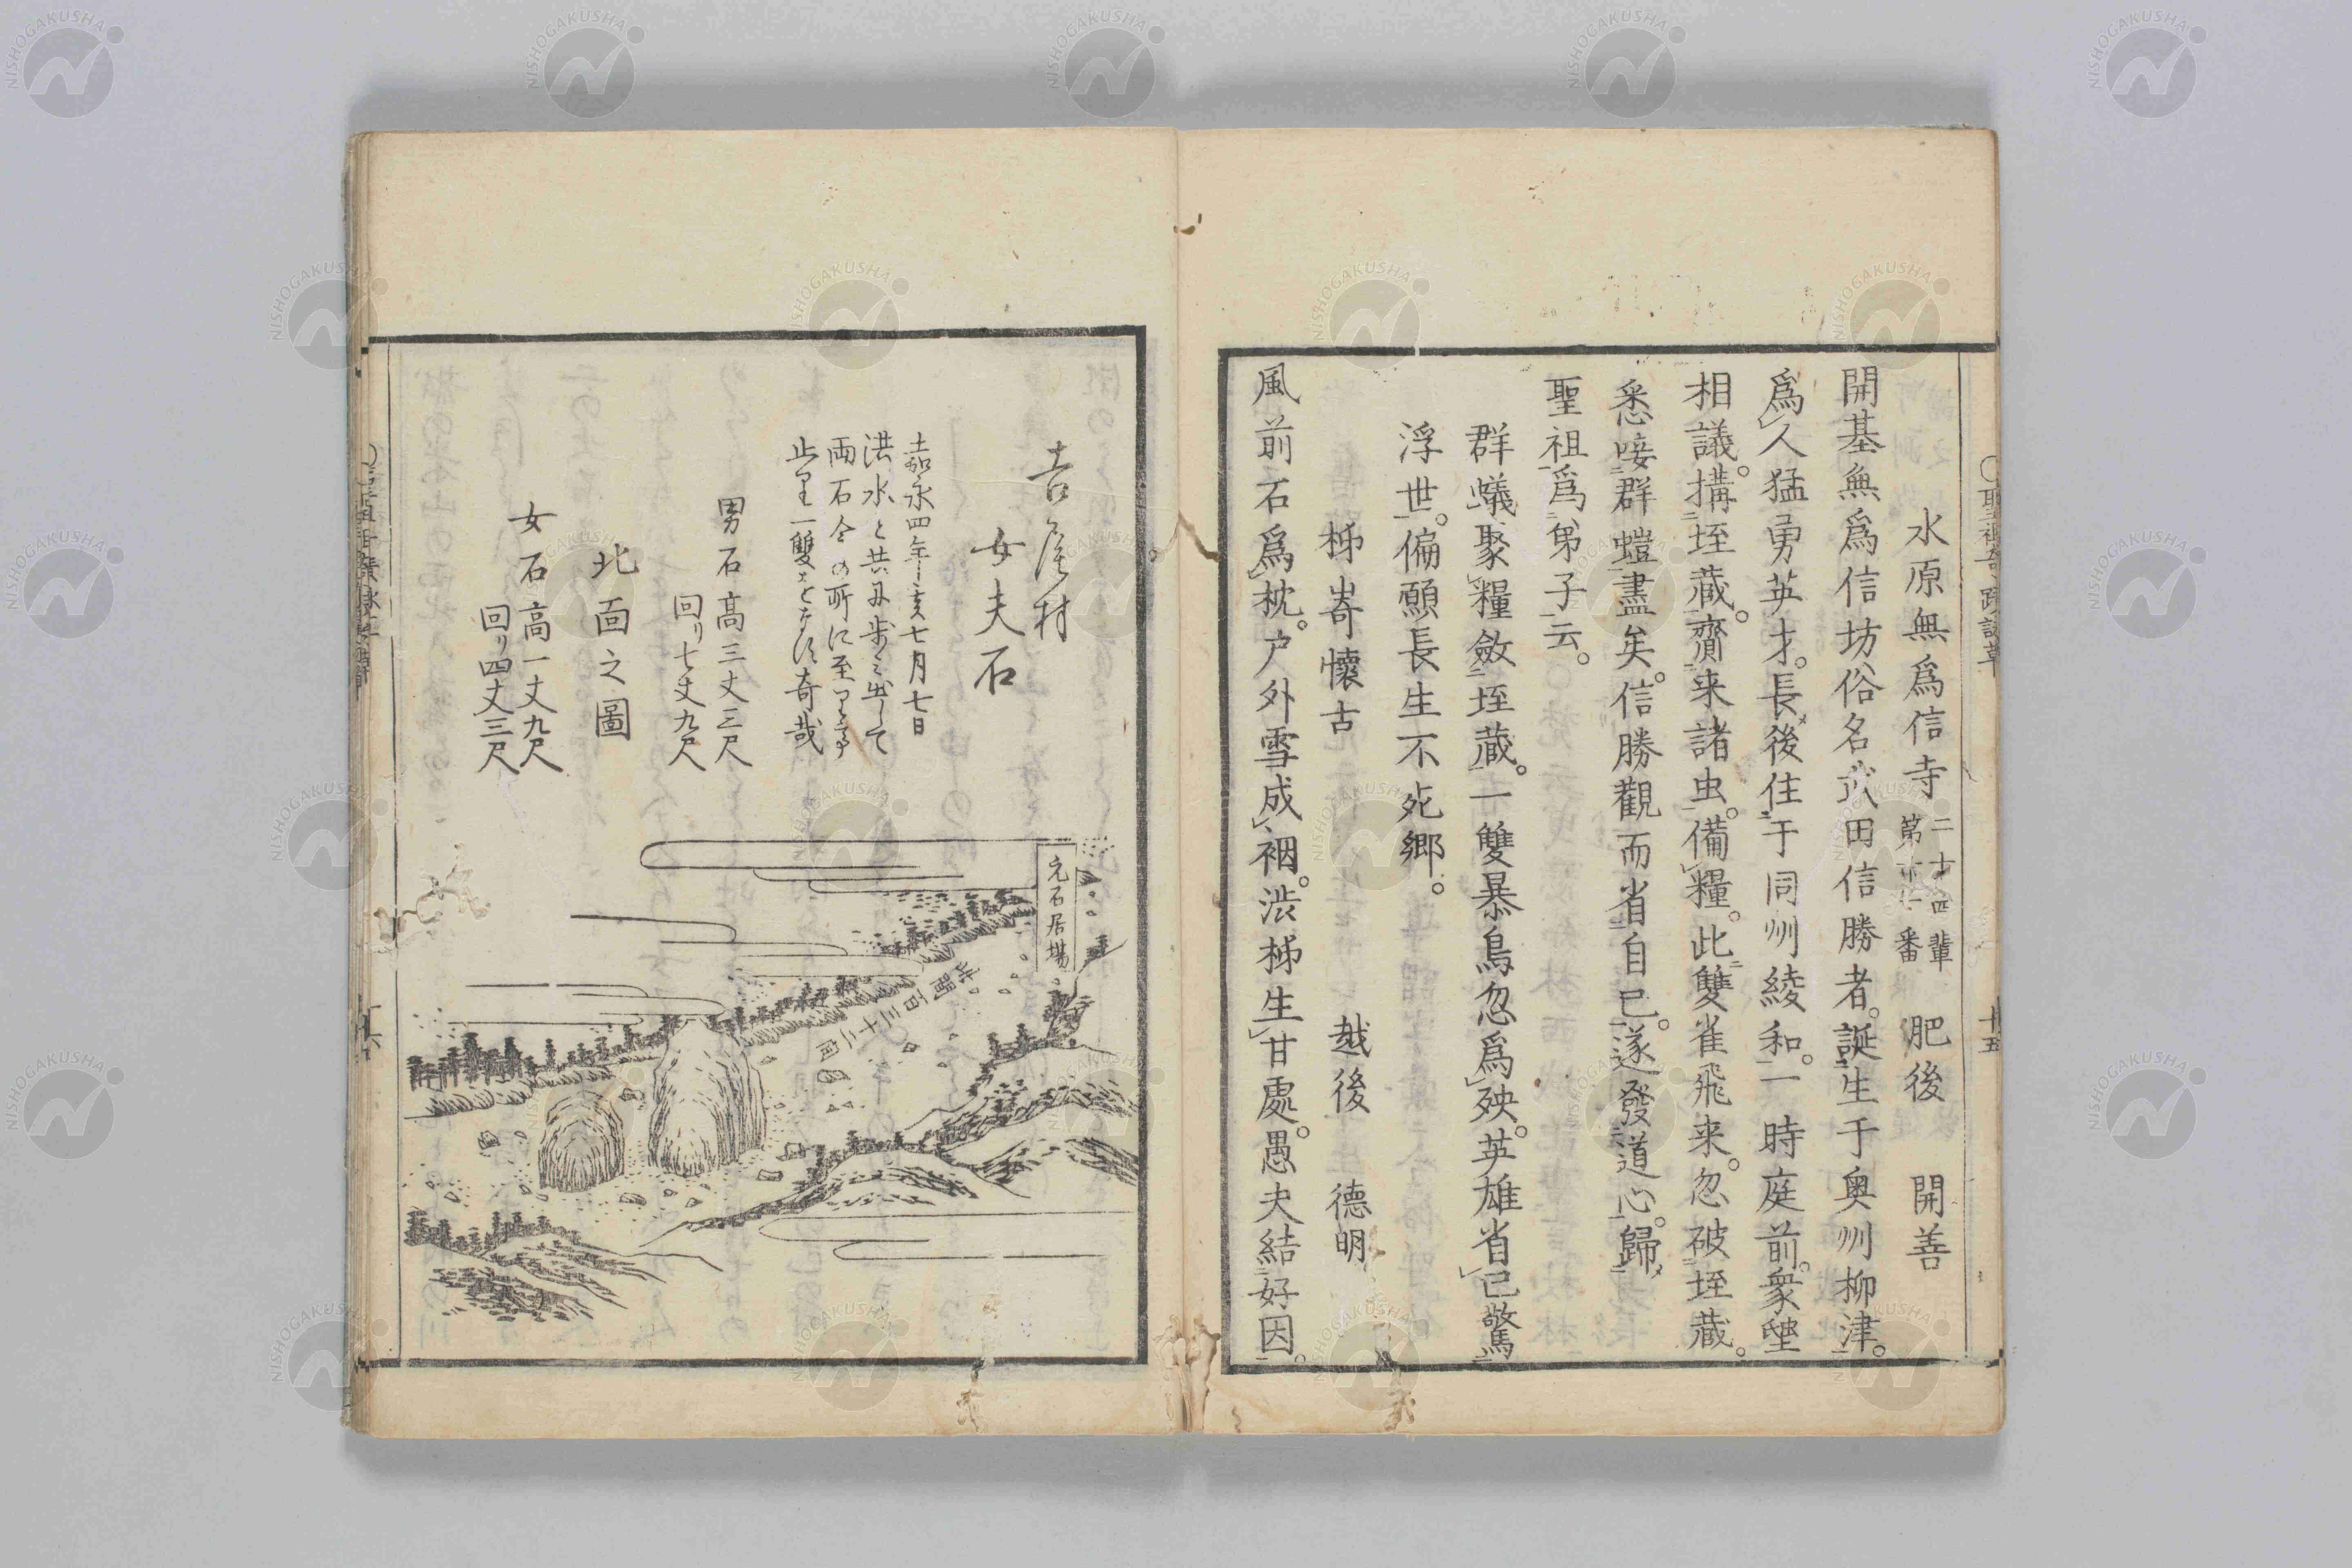 水原無爲信寺 二十四輩 第十一番 肥後 開善
開基無爲信坊俗名武田信勝者。誕生于奥州柳津。
爲人猛勇英才。長後住于同州綾和。一時庭前。衆蛩
相議。搆垤蔵。齎来諸虫。備糧。此雙雀飛来。忽破垤蔵。
悉唼群螘盡矣。信勝觀而省自已。遂發道心。歸
聖祖爲弟子云。
群蟻聚糧斂垤蔵。一雙暴鳥忽爲殃。英雄省已驚
浮世。偏願長生不死郷。
柹嵜懷古 越後 德明
風前石爲枕。戸外雪成裀。渋柹生甘處。愚夫結好因。
十五
女夫石
嘉永四年亥七月七日
洪水と共に歩み出して
両石今の所に至る
男石高三丈三尺
回リ七丈九尺
北面之圖
女石高一丈九尺
回リ四丈三尺
元石居場
此間百三十二間
NISHOGAKUSHA